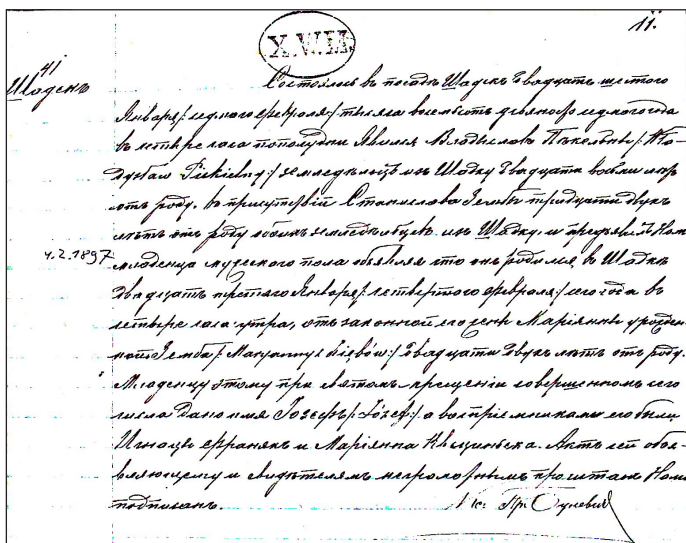 X.W.M.
11.
41
Шадекъ
Состоялось въ посадѣ Шадекъ двадцать шестого
Января /: седьмого февраля :/ тысяча восемьсотъ девяносто седьмого года
въ четыре часа пополудни. Явился Владыславъ Пѣкельны /: Wła-
dysław Piekielny :/ земледѣлецъ изъ Шадку двадцати восьми лѣтъ
отъ роду, въ присутствіи Станислава Зембы тридцати двухъ
лѣтъ отъ роду обоихъ земледѣльцевъ изъ Шадку, и предъявилъ Намъ
4.2.1897
младенца мужескаго пола объявляя что онъ родился въ Шадкѣ
двадцать третьяго Января /: четвертого февраля :/ сего года въ
четыре часа утра, отъ законной его жены Маріянны урожден-
ной Земба /: Maryanny z :/ двадцати двухъ лѣтъ отъ роду.
Младенцу этому при святомъ крещеніи совершенномъ сего
числа дано имя Іозефъ /: Józef :/ а воспріемниками его были
Игнацы Франякъ и Маріянна. Актъ сей объя-
вляющему и свидѣтелямъ неграмотнымъ прочитанъ Нами
подписанъ.